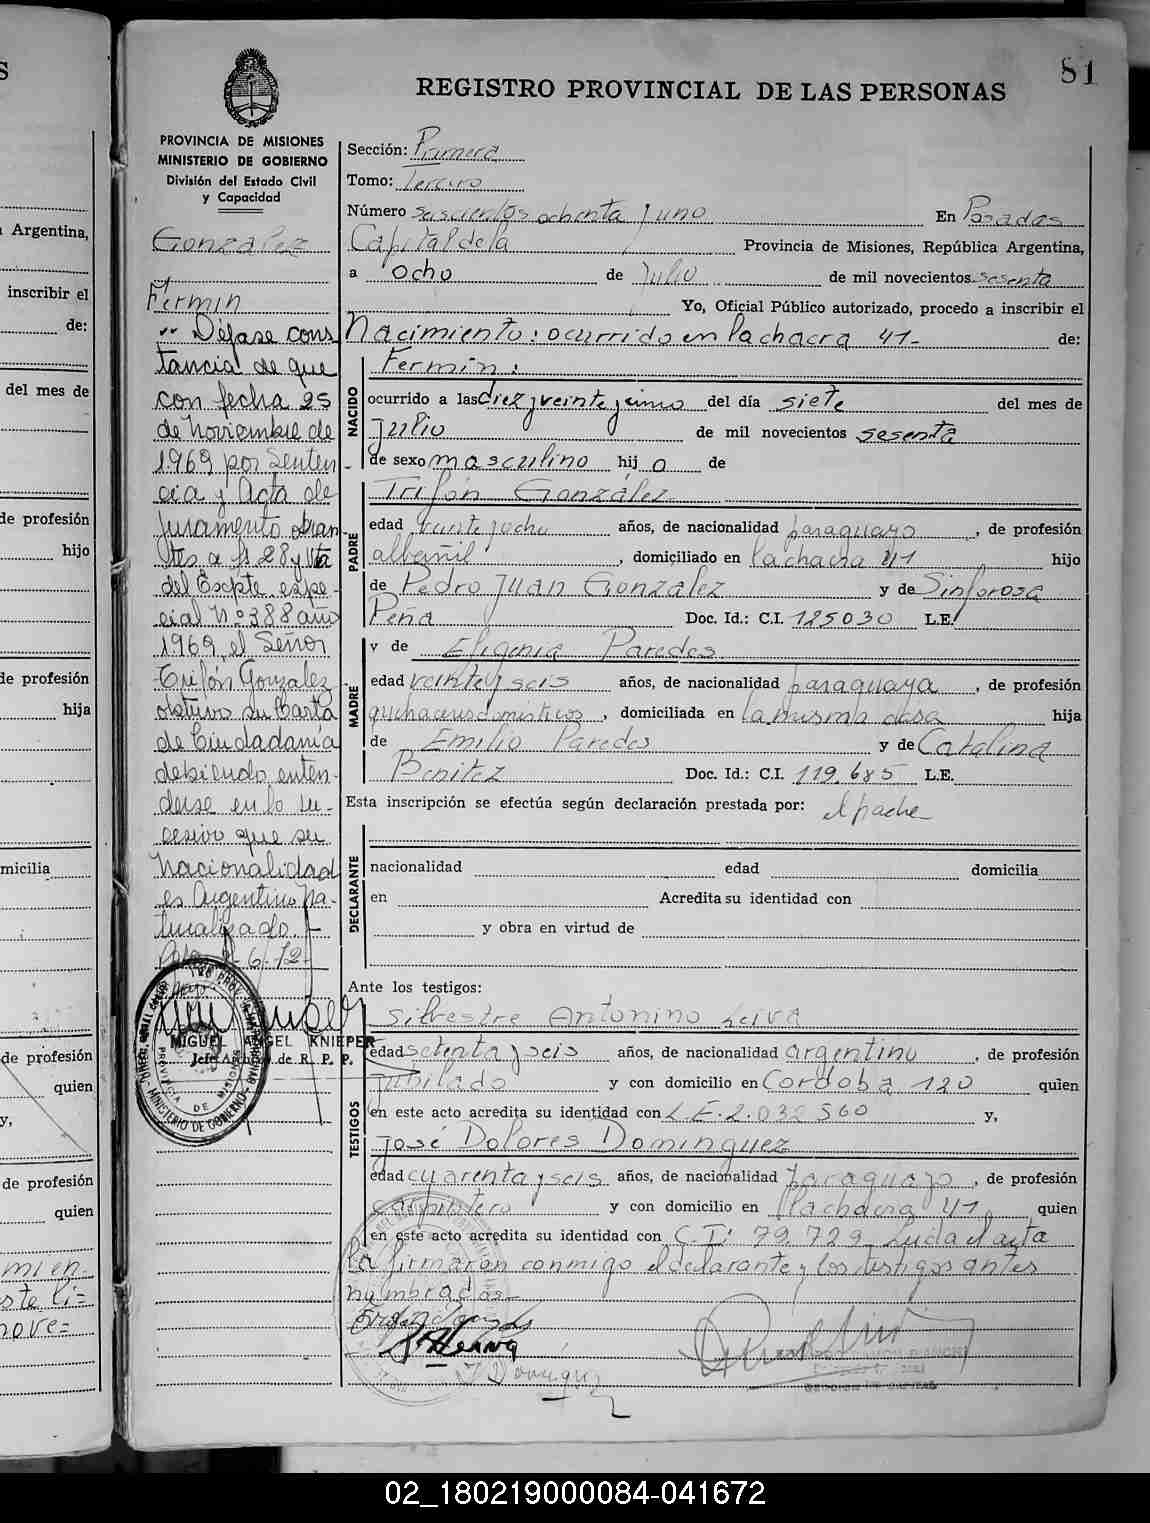 81
REGISTRO PROVINCIAL DE LAS PERSONAS
PROVINCIA DE MISIONES
MINISTERIO DE GOBIERNO
División del Estado Civil
y Capacidad
Gonzalez
Fermin
"" Déjase cons
tancia de que
con fecha 25
de Noviembre de
1969 por Senten
cia y Acta de
Juramento obran
tes a fs 28 y vta
del Expte. espe-
cial Nº 388 año
1969, el Señor
Trifón Gonzalez
obtuvo su Carta
de Ciudadanía
debiendo enten-
derse en lo su-
cesivo que su
Nacionalidad
es Argentino Na-
turalizado.
6-72-
MIGUEL ANGEL KNIEPER
Jefe Archivo de R. P. P.
PROVINCIA DE MISIONES
MINISTERIO DE GOBIERNO
Sección: Primera
Tomo: Tercero
Número seiscientos ochenta y uno En Posadas
Capital de la Provincia de Misiones, República Argentina,
a ocho de Julio de mil novecientos sesenta
Yo, Oficial Público autorizado, procedo a inscribir el
Nacimiento: ocurrido en la chacra 41- de:
NACIDO
Fermín:
ocurrido a las diez y veinte y cinco del día siete del mes de
Julio de mil novecientos sesenta
de sexo masculino hijo de
PADRE
Trifón González
edad veinte y ocho años, de nacionalidad paraguayo, de profesión
albañil, domiciliado en la chacra 41 hijo
de Pedro Juan Gonzalez y de Sinforosa
Peña Doc. Id.: C.I. 125030 L.E.
MADRE
y de Efigenia Paredes
edad veinte y seis años, de nacionalidad paraguaya, de profesión
quehaceres domésticos, domiciliada en la misma casa hija
de Emilio Paredes y de Catalina
Benitez Doc. Id.: C.I. 119.685 L.E.
Esta inscripción se efectúa según declaración prestada por: el padre
DECLARANTE
nacionalidad edad domicilia
en Acredita su identidad con
y obra en virtud de
Ante los testigos:
TESTIGOS
Silvestre Antonino Leiva
edad setenta y seis años, de nacionalidad argentino, de profesión
jubilado y con domicilio en Cordoba 120 quien
en este acto acredita su identidad con L.E. 2.032560 y,
José Dolores Dominguez
edad cuarenta y seis años, de nacionalidad paraguayo, de profesión
carpintero y con domicilio en la chacra 41 quien
en este acto acredita su identidad con C.I: 79.729 Leida el acta
la firmaron conmigo el declarante y los testigos antes
nombrados-
S A Leiva
J Dominguez
S
Argentina,
inscribir el
de:
del mes de
de profesión
hijo
de profesión
hija
micilia
de profesión
quien
y,
de profesión
quien
mien-
ste li=
nove=
02_180219000084-041672